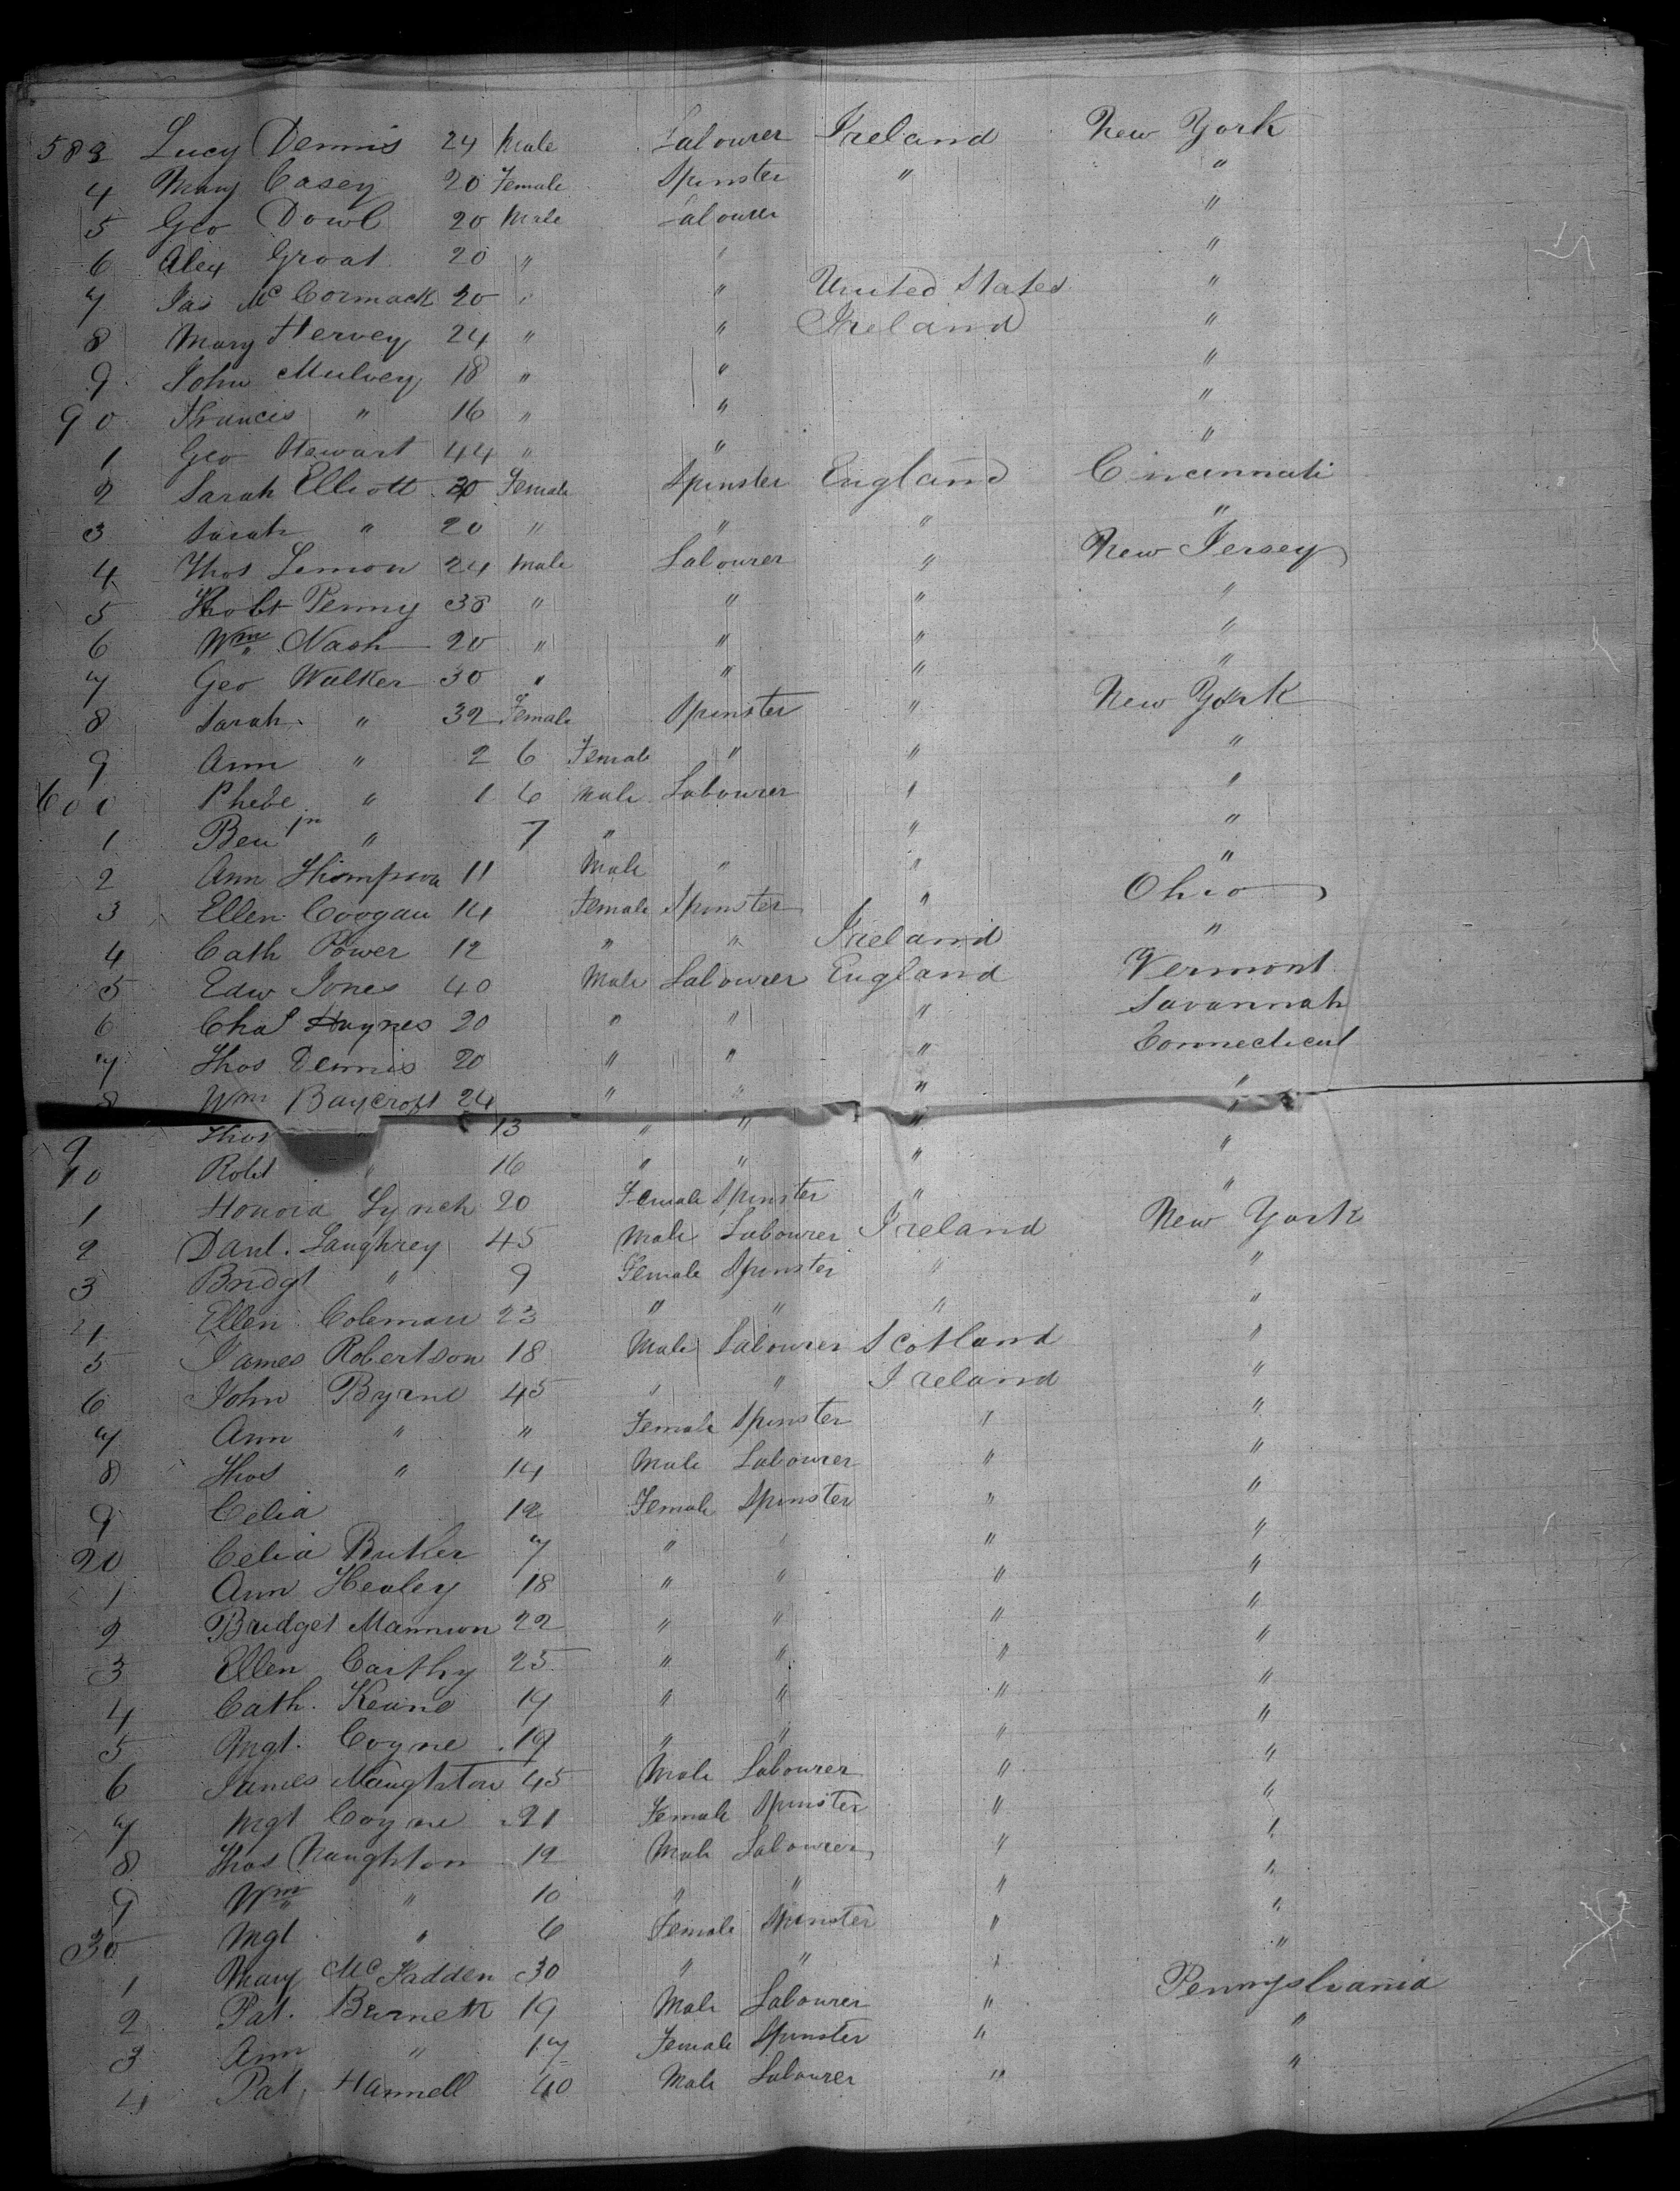 583 Lucy Dennis 24 Male Labourer Ireland New York
4 Mary Casey 20 Female Spinster " "
5 Geo Dowl 20 Male Labourer "
6 Alex Groat 20 " " "
7 Jas McCormack 20 " " United States "
8 Mary Hervey 24 " " Ireland "
9 John Mulvey 18 " " "
90 Francis " 16 " " "
1 Geo Stewart 44 " " "
2 Sarah Elliott 30 Female Spinster England Cincinnati
3 Sarah " 20 " " " "
4 Thos Lemon 24 Male Labourer " New Jersey
5 Robt Penny 38 " " " "
6 Wm Nash 20 " " " "
7 Geo Walker 30 " " " "
8 Sarah " 32 Female Spinster " New York
9 Ann " 2 6 Female " " "
600 Phebe " 1 6 Male Labourer " "
1 Benjn " 7 " " "
2 Ann Thompson 11 Male " " "
3 Ellen Coogan 14 Female Spinster " Ohio
4 Cath Power 12 " " Ireland "
5 Edw Jones 40 Male Labourer England Vermont
6 Chas Haynes 20 " " " Savannah
7 Thos Dennis 20 " " " Connecticut
8 Wm Baycroft 24 " " " "
9 Thos " 13 " " " "
10 Robt " 16 " " " "
1 Honora Lynch 20 Female Spinster " "
2 Danl. Laughrey 45 Male Labourer Ireland New York
3 Bridgt " 9 Female Spinster " "
4 Ellen Coleman 23 " " " "
5 James Robertson 18 Male Labourer Scotland "
6 John Byrne 45 " " Ireland "
7 Ann " " Female Spinster " "
8 Thos " 14 Male Labourer " "
9 Celia 12 Female Spinster " "
20 Celia Butler 7 " " " "
1 Ann Healey 18 " " " "
2 Bridget Mannion 22 " " " "
3 Ellen Carthy 25 " " " "
4 Cath. Keane 19 " " " "
5 Mgt. Coyne 19 " " " "
6 James Naughton 45 Male Labourer " "
7 Mgt Coyne 21 Female Spinster " "
8 Thos Naughton 12 Male Labourer " "
9 Wm " 10 " " " "
30 Mgt " 6 Female Spinster " "
1 Mary McFadden 30 " " " "
2 Pat. Burnett 19 Male Labourer " Pennyslvania
3 Ann " 17 Female Spinster " "
4 Pat. Hannell 40 Male Labourer " "